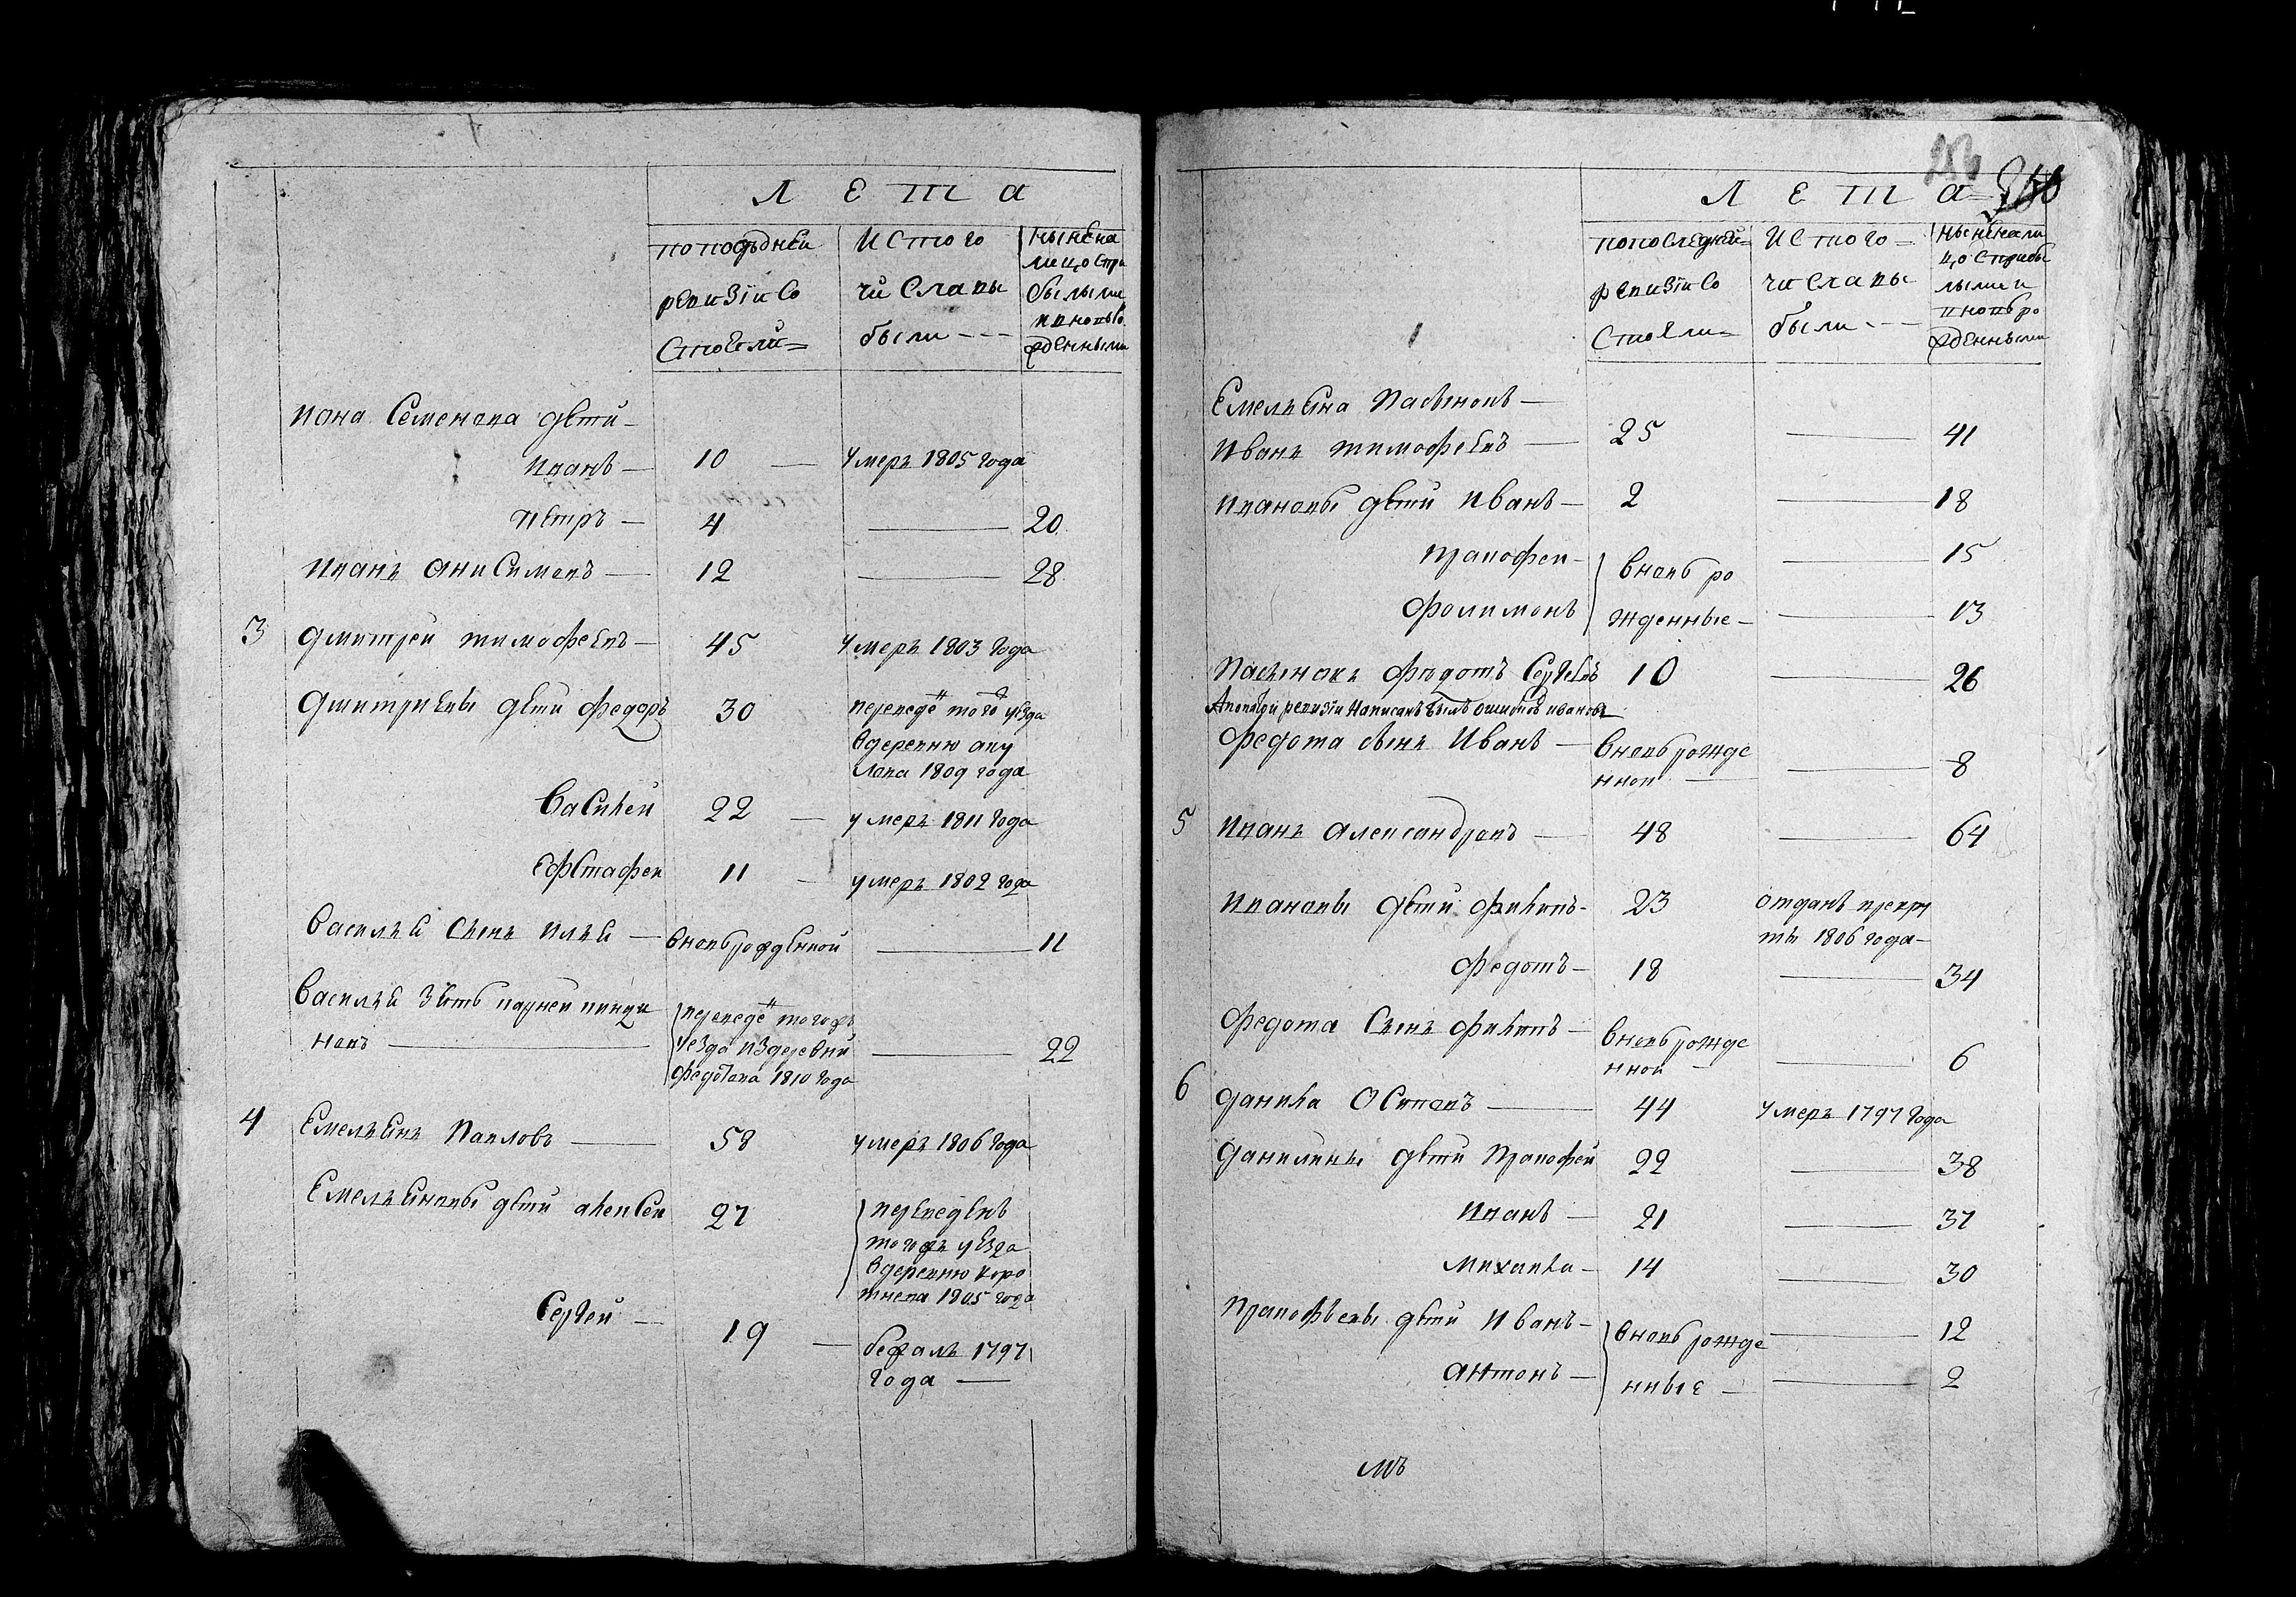 Лета
попоследней
ревизiи со
стояли
ис того
числа вы
были
ныне на
лицо с при
былыми
и вновь ро
жденными
Иона Семенова дети
Иванъ 10 умеръ 1805 года
Петръ 4 20
Иванъ Анисимовъ 12 28
3 Дмитрей Тимофеевъ 45 умеръ 1803 года
Дмитриевы дети Федоръ 30 переведе того уезда
в деревню аку
лова 1809 года
Василей 22 умеръ 1811 года
Ефстафей 11 умеръ 1802 года
Василья сынъ Илья вновьрожденной 11
Василья зять
новъ
переведе тогожъ
уезда из деревни
Федотова 1810 года
22
4 Емельянъ Павловъ 58 умеръ 1806 года
Емельяновы дети Алексей 27 переведенъ
тогожъ уезда
в деревню коро
тнева 1805 года
Сергей 19 бежалъ 1797
года
Лета
попоследней
ревизiи со
стояли
ис того
числа вы
были
ныне на ли
цо с прибы
лыми и
вновь ро
жденными
Емельяна пасынокъ
Иванъ Тимофеевъ 25 41
Ивановы дети Иванъ 2 18
Прокофей вновь ро 15
Фолимонъ жденные 13
Пасынокъ Федотъ Сергеевъ 10 26
А по пятой ревизiи написанъ былъ ошибкой Ивановъ
Федота сынъ Иванъ вновьрожде
нной 8
5 Иванъ Александровъ 48 64
Ивановы дети Филипъ 23 отданъ врекру
ты 1806 года
Федотъ 18 34
Федота сынъ Филипъ вновьрожде
нной 6
6 Данила Осиповъ 44 умеръ 1797 года
Данилины дети Прокофей 22 38
Иванъ 21 37
Михаила 14 30
Прокофьевы дети Иванъ вновьрожде 12
Антонъ нные 2
мъ